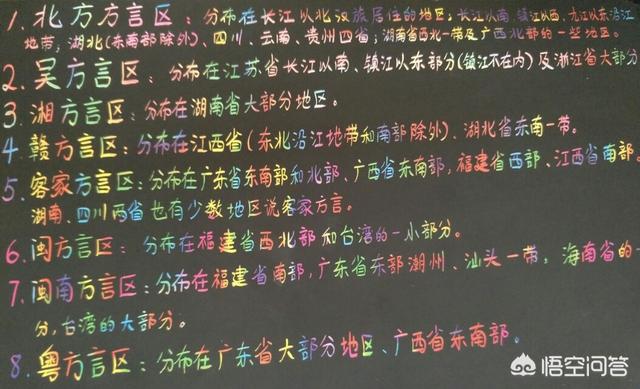 1、北方方言区：分布在长江以北汉族居住的地区；长江以南、镇江以西、九江以东沿江
地带；湖北(东南部除外)、四川、云南、贵州四省；湖南省西北一带及广西北部的一些地区。
2、吴方言区：分布在江苏省长江以南、镇江以东部分(镇江不在内)及浙江省大部分
3、湘方言区：分布在湖南省大部分地区。
4、赣方言区：分布在江西省(东北沿江地带和南部除外)、湖北省东南一带。
5、客家方言区：分布在广东省东南部和北部、广西省东南部、福建省西部、江西省南部、
湖南、四川两省也有少数地区说客家方言。
6、闽方言区：分布在福建省西北部和台湾的一小部分。
7、闽南方言区：分布在福建省南部，广东省东部潮州、汕头一带；海南省的一
分，台湾的大部分。
8、粤方言区：分布在广东省大部分地区、广西省东南部。
悟空问答